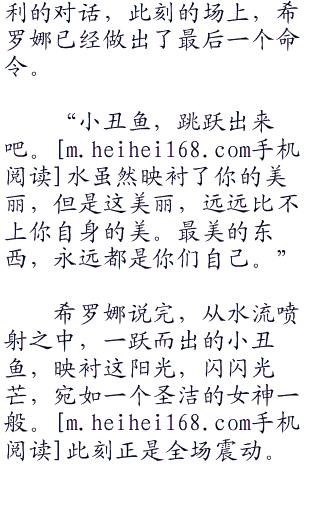 利的对话，此刻的场上，希
罗娜已经做出了最后一个命
令。
“小丑鱼，跳跃出来
吧。[m.heihei168.com手机
阅读]水虽然映衬了你的美
丽，但是这美丽，远远比不
上你自身的美。最美的东
西，永远都是你们自己。”
希罗娜说完，从水流喷
射之中，一跃而出的小丑
鱼，映衬这阳光，闪闪光
芒，宛如一个圣洁的女神一
般。[m.heihei168.com手机
阅读]此刻正是全场震动。